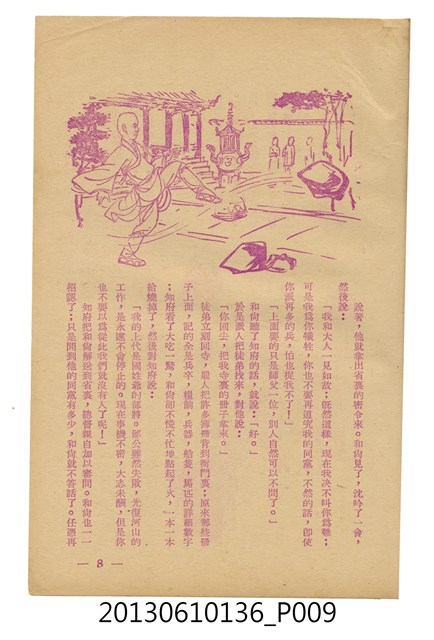 說著，他就拿出省裏的密令來。和尙見了，沈吟了一會，
然後說：
「我和大人一見如故；旣然這樣，現在我决不叫你爲難。
可是我爲你犧牲，你也不要再追究我的同黨，不然的話，卽使
你派再多的兵，怕也捉我不了！」
「上面要的只是師父一位，別人自然可以不問了。」
和尙聽了知府的話，就說：「好。」
於是派人把徒弟找來，對他說：
「你回去，把我寺裏的册子拿來。」
徒弟立刻回寺，跟人把許多簿册
子上面，記的全是兵卒，糧餉，兵器，給養，馬匹的詳細數字
；知府看了大吃一驚，和尙卻不慌不忙地點起了火，一本一本
給燒掉了，然後對知府說：
「我的上代是國姓爺的部將。鄭公雖然失敗，光復河山的
工作，是永遠不會停止的。現在事機不密，大志未酬，但是你
也不要以爲從此我們就沒有人了呢！」
知府把和尙解送到省裏，總督親自加以審問。和尙也一一
招認了；只是問到他的同黨有多少，和尙就不答話了。任憑再
— 8 —
20130610136_P009